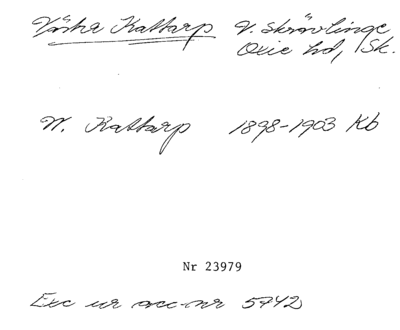 Västra Kattarp V. Skrävlinge
Oxie hd, Sk.
W. Kattarp 1898-1903 Kb
Nr 23979
Exc ur acc-nr 5742